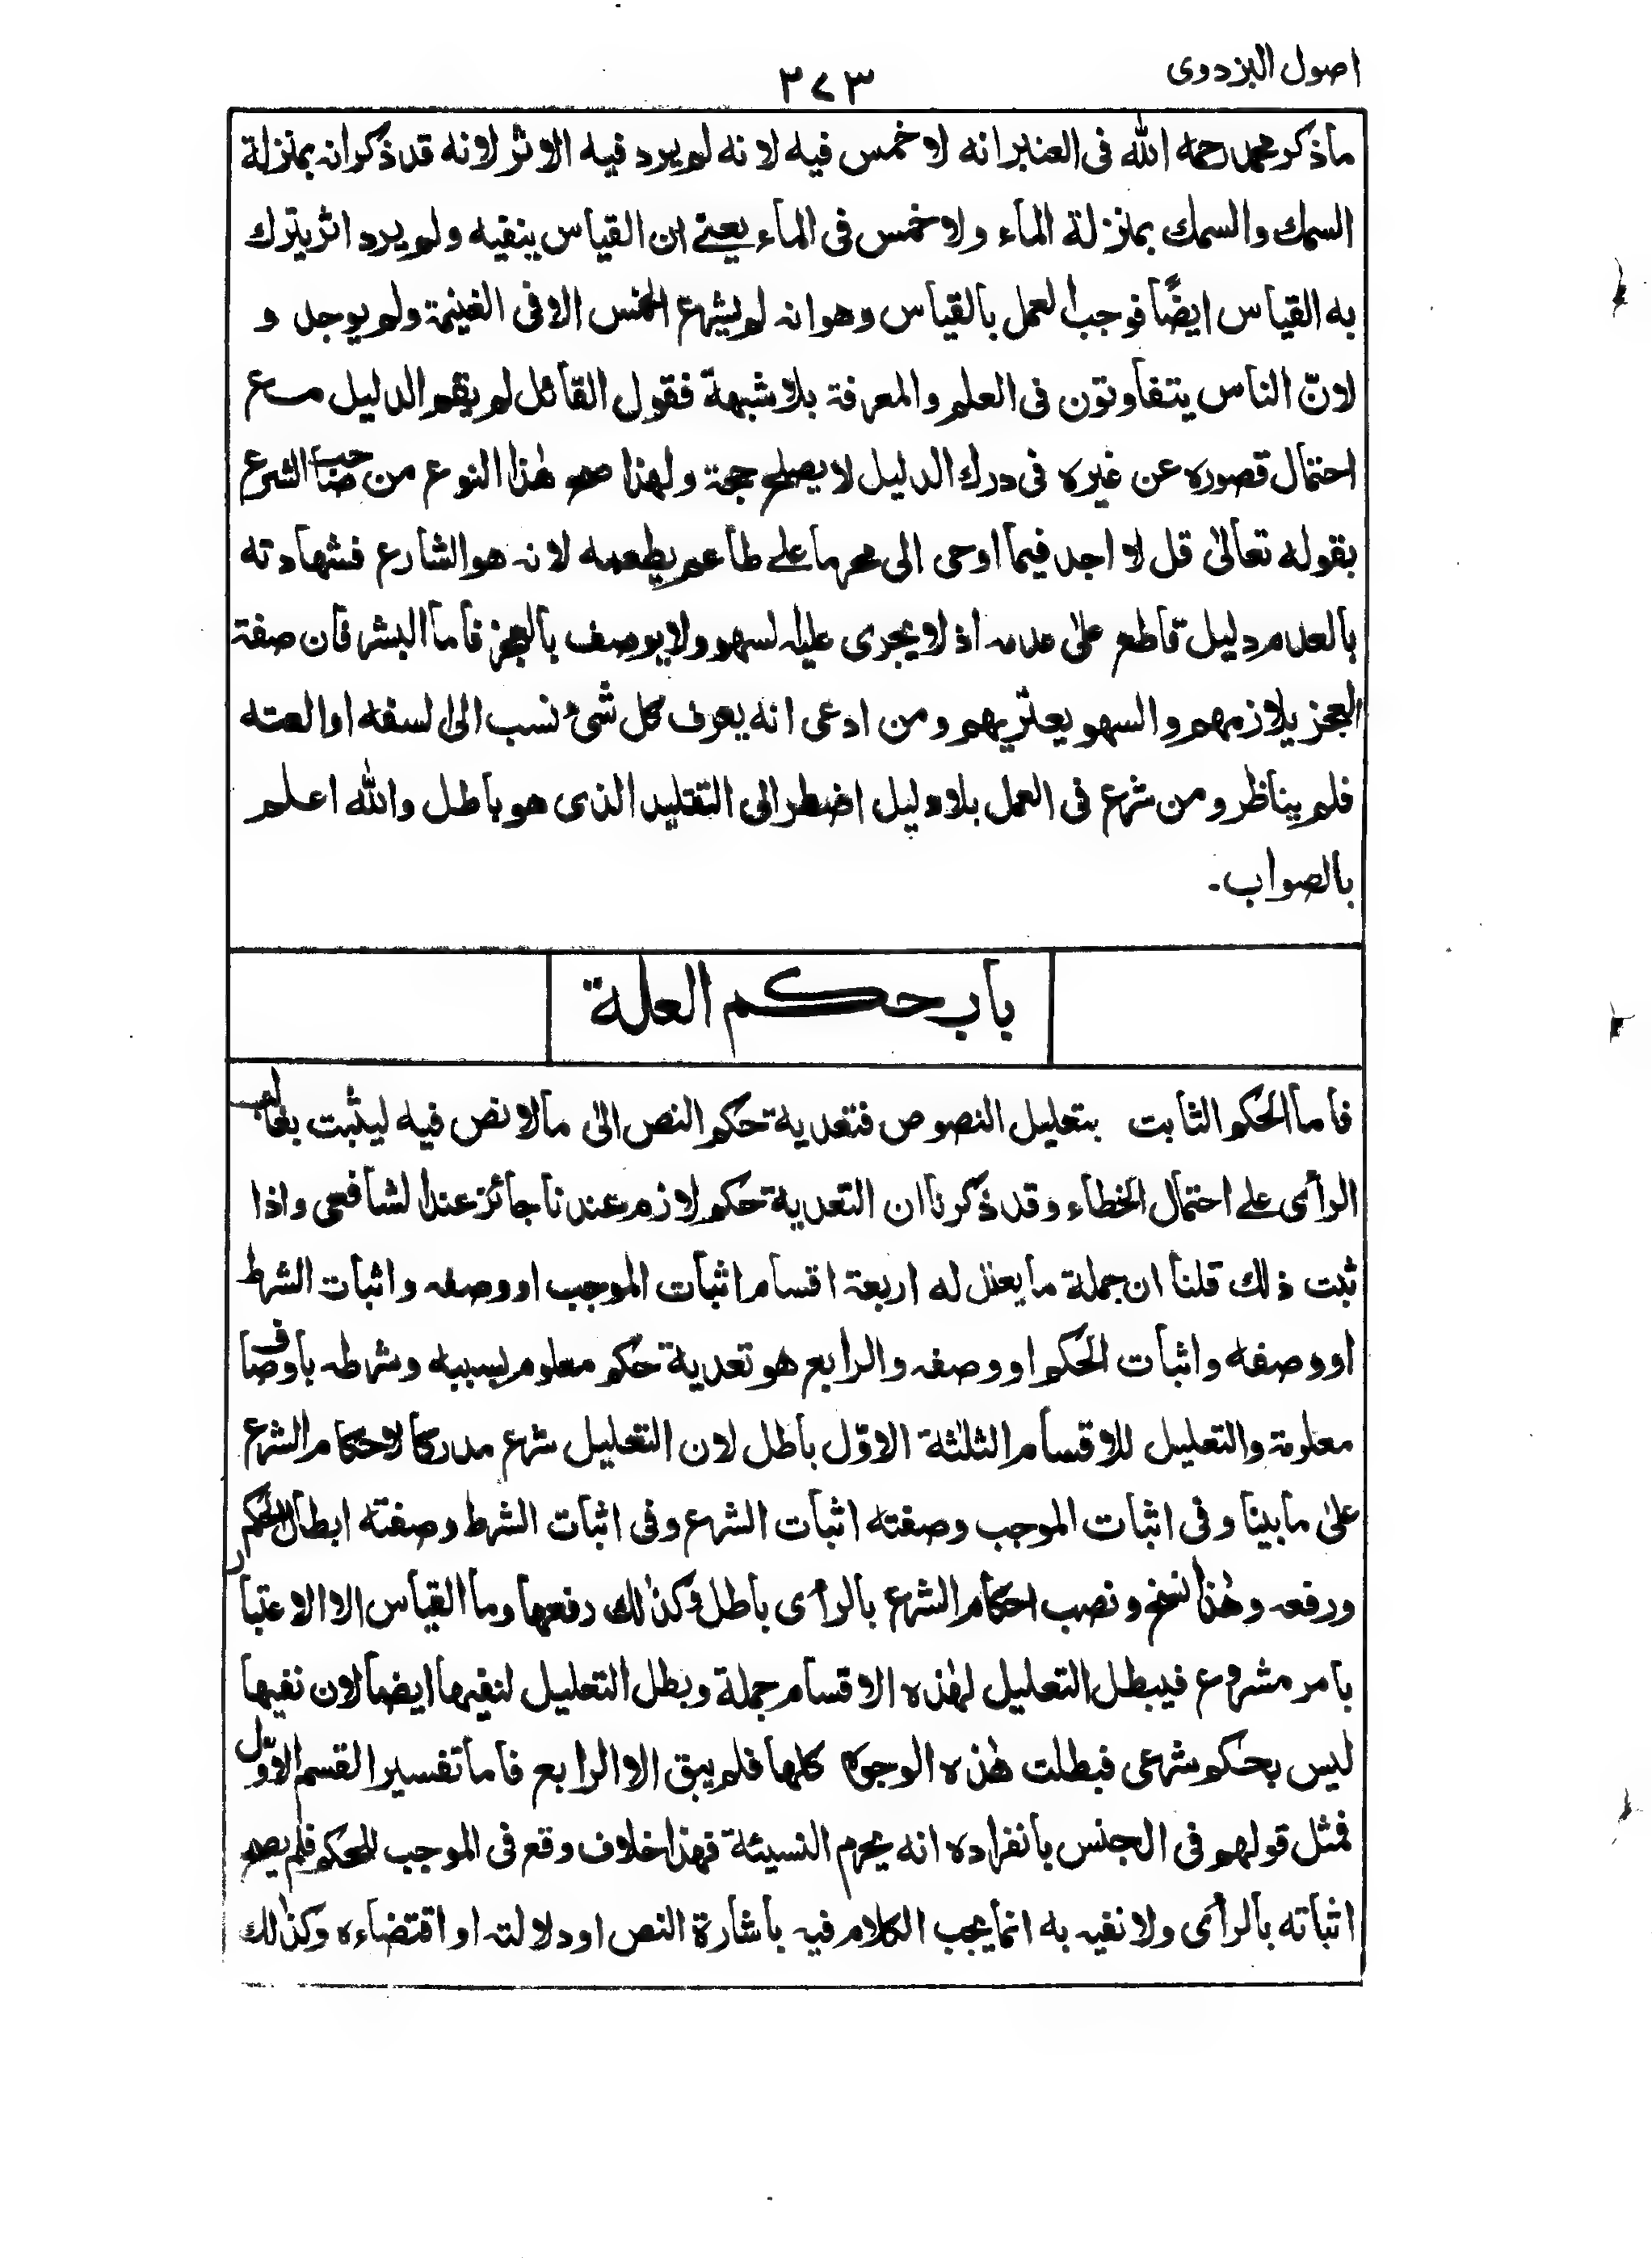 اصول البزدوى
٢٧٣
ما ذكر محمد رحمه الله فى العنبر انه لا خمس فيه لانه لم يرد فيه الاثر لانه قد ذكر انه بمنزلة
السمك والسمك بمنزلة الماء ولا خمس فى الماء يعنے ان القياس ينفيه ولم يرد اثر يترك
به القياس ايضًا فوجب العمل بالقياس وهو انه لم يشرع الخمس الا فى الغنيمة ولم يوجد و
لانّ الناس يتفاوتون فى العلم والمعرفة بلا شبهة فقول القائل لم يقم الدليل مع
احتمال قصوره عن غيره فى درك الدليل لا يصلح حجة ولهذا صح هٰذا النوع من صاحب الشرع
بقوله تعالىٰ قل لا اجد فيما اوحى الى محرما علے طاعم يطعمه لانه هو الشارع فشهادته
بالعدم دليل قاطع علىٰ عدمه اذ لا يجرى عليه السهو ولا يوصف بالعجز فاما البشر فان صفة
العجز يلازمهم والسهو يعتريهم ومن ادعى انه يعرف كل شئ نسب الى السفه او العته
فلم يناظر ومن شرع فى العمل بلا دليل اضطر الى التقليد الذى هو باطل والله اعلم
بالصواب.
باب حكم العلة
فاما الحكم الثابت بتعليل النصوص فتعدية حكم النص الىٰ ما لا نص فيه ليثبت بغالب
الرأى علے احتمال الخطاء وقد ذكرنا ان التعدية حكم لازم عندنا جائز عند الشافعى واذا
ثبت ذٰلك قلنا ان جملة ما يعلل له اربعة اقسام اثبات الموجب او وصفه واثبات الشرط
او وصفه واثبات الحكم او وصفه والرابع هو تعدية حكم معلوم بسببه وشرطه باوصاف
معلومة والتعليل للاقسام الثلٰثة الاوّل باطل لان التعليل شرع مدركا لاحكام الشرع
علىٰ ما بينا وفى اثبات الموجب وصفته اثبات الشرع وفى اثبات الشرط وصفته ابطال الحكم
ورفعه وهٰذا نسخ ونصب احكام الشرع بالرأى باطل وكذٰلك رفعها وما القياس الا الاعتبار
بامر مشروع فيبطل التعليل لهٰذه الاقسام جملة وبطل التعليل لنفيها ايضا لان نفيها
ليس بحكم شرعى فبطلت هٰذه الوجوه كلها فلم يبق الا الرابع فاما تفسير القسم الاوّل
فمثل قولهم فى الجنس بانفراده انه يحرم النسيئة فهذا خلاف وقع فى الموجب للحكم فلم يصح
اثباته بالرأى ولا نفيه به انما يجب الكلام فيه باشارة النص او دلالته او اقتضاءه وكذٰلك